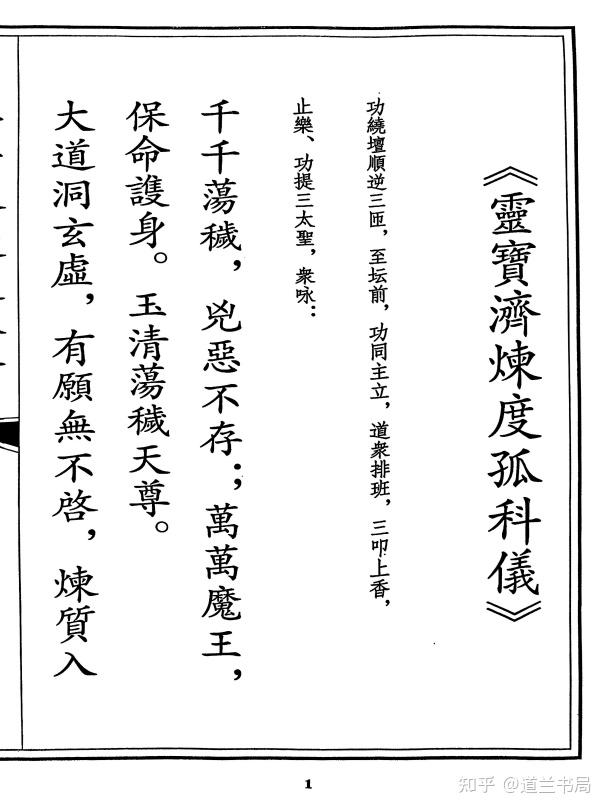 《靈寶濟煉度孤科儀》
功繞壇順逆三匝，至坛前，功同主立，道衆排班，三叩上香，
止樂、功提三太聖，衆咏：
千千蕩穢，兇惡不存；萬萬魔王，
保命護身。玉清蕩穢天尊。
大道洞玄虛，有願無不啓，煉質入
1
知乎 @道兰书局